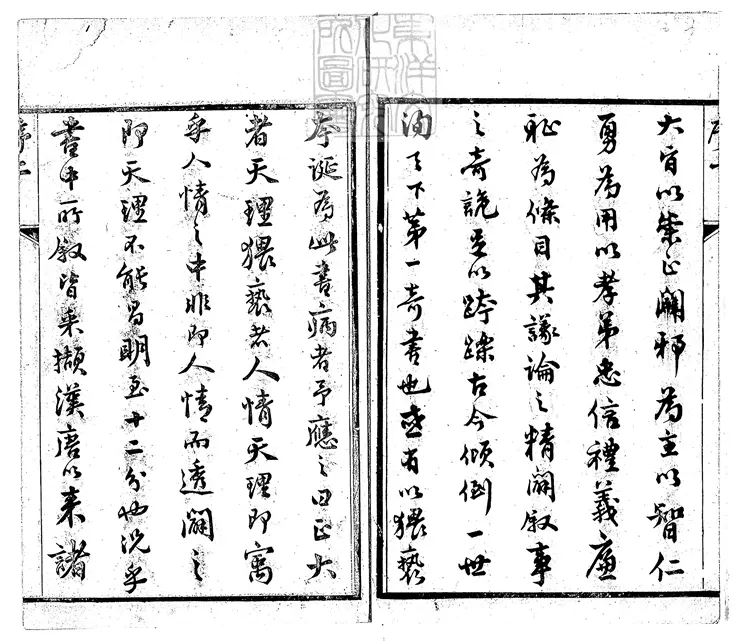 大旨以崇正闢邪為主以智仁
勇為用以孝弟忠信禮義廉
恥為條目其議論之精闢叙事
之奇詭足以跨躒古今傾倒一世
洵天下第一奇書也或有以猥褻
夸誕為此書病者予應之曰正大
者天理猥褻者人情天理即寓
乎人情之中非即人情而透闢之
即天理不能昌明至十二分也況乎
書中所叙皆采擷漢唐以来諸
序二